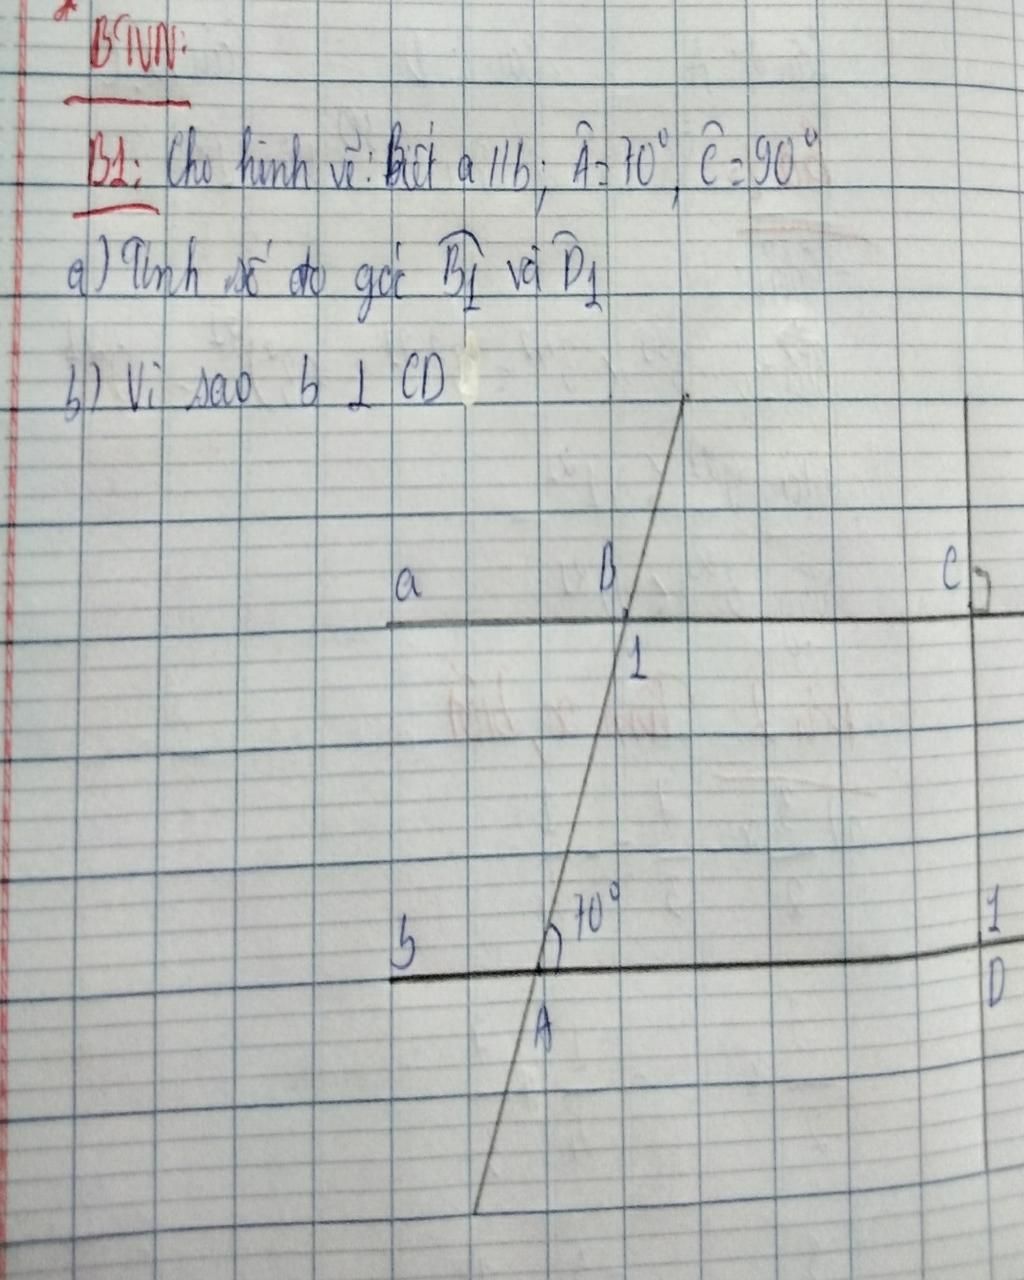 BTVN:
B1: Cho hình vẽ: Biết a // b; Â = 70°, Ĉ = 90°
a) Tính số đo góc B̂1 và D̂1
b) Vì sao b ⊥ CD
a
B
C
1
70°
b
1
A
D